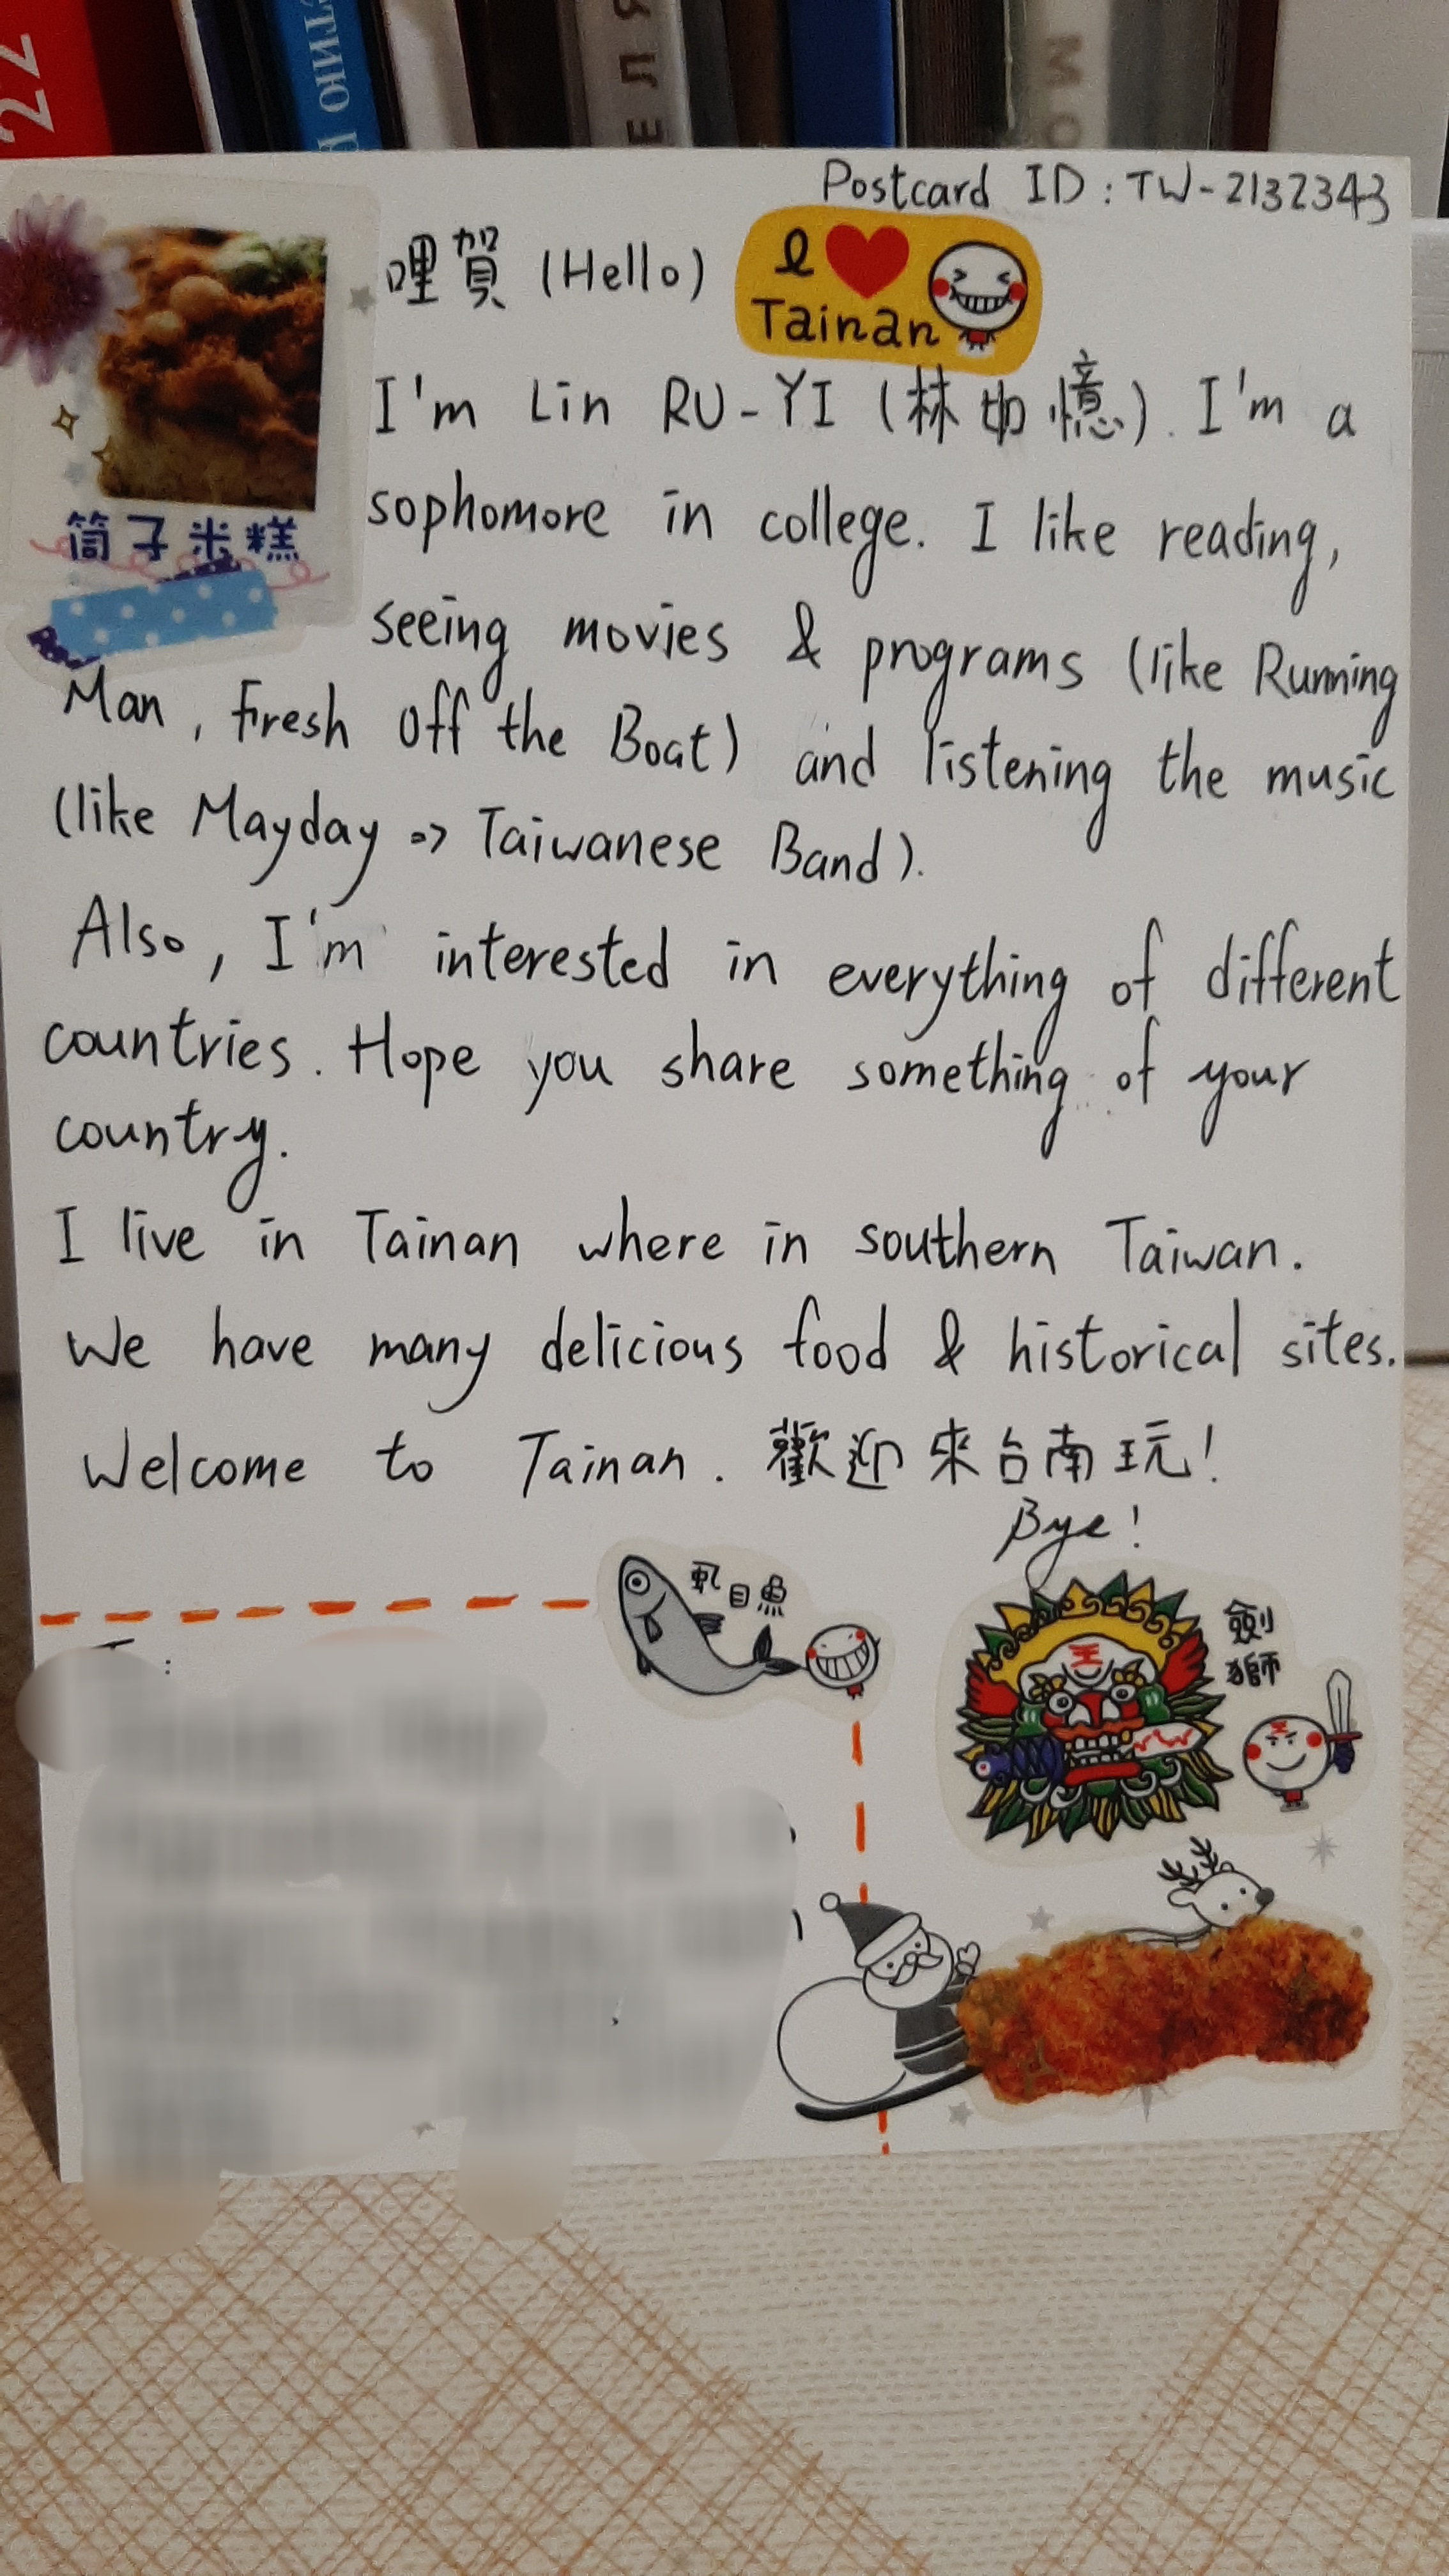 22
СТИЮ
ЕЛЯ
МО
Postcard ID : TW-2132343
哩賀 (Hello)
I ❤
Tainan
I'm Lin RU-YI (林如憶). I'm a
sophomore in college. I like reading,
筒子米糕
seeing movies & programs (like Running
Man, Fresh Off the Boat) and listening the music
(like Mayday => Taiwanese Band).
Also, I'm interested in everything of different
countries. Hope you share something of your
country.
I live in Tainan where in southern Taiwan.
We have many delicious food & historical sites.
Welcome to Tainan. 歡迎來台南玩!
Bye!
虱目魚
劍獅